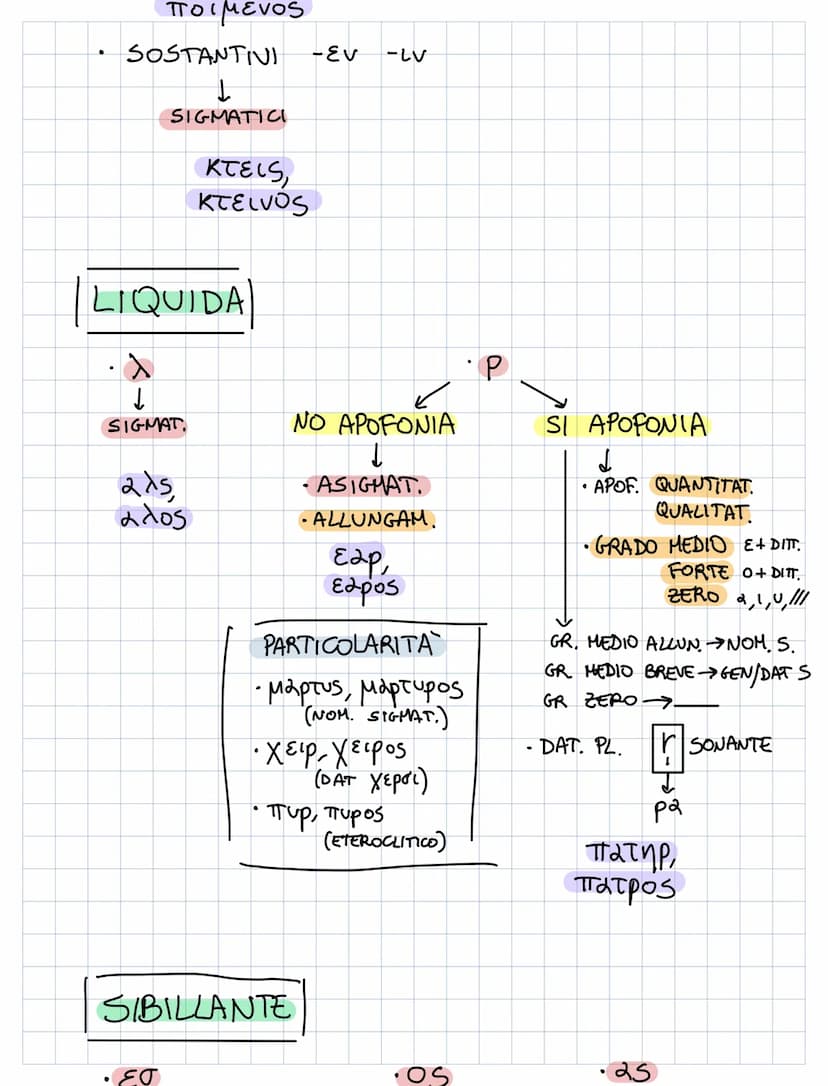 ποιμενος
· SOSTANTIVI -εν -ιν
↓
SIGMATICI
κτεις,
κτεινος
LIQUIDA
· λ
↓
SIGMAT.
αλς,
αλος
· ρ
NO APOFONIA
↓
· ASIGMAT.
· ALLUNGAM.
εαρ,
εαρος
PARTICOLARITÀ
· μαρτυς, μαρτυρος
(NOM. SIGMAT.)
· χειρ, χειρος
(DAT χερσι)
· πυρ, πυρος
(ETEROCLITICO)
SI APOFONIA
↓
· APOF. QUANTITAT.
QUALITAT.
· GRADO MEDIO ε + DITT.
FORTE ο + DITT.
ZERO α, ι, υ, ///
GR. MEDIO ALLUN. → NOM. S.
GR MEDIO BREVE → GEN/DAT S
GR ZERO → ___
· DAT. PL. r̥ SONANTE
↓
ρα
πατηρ,
πατρος
SIBILLANTE
· εσ · ος · ας